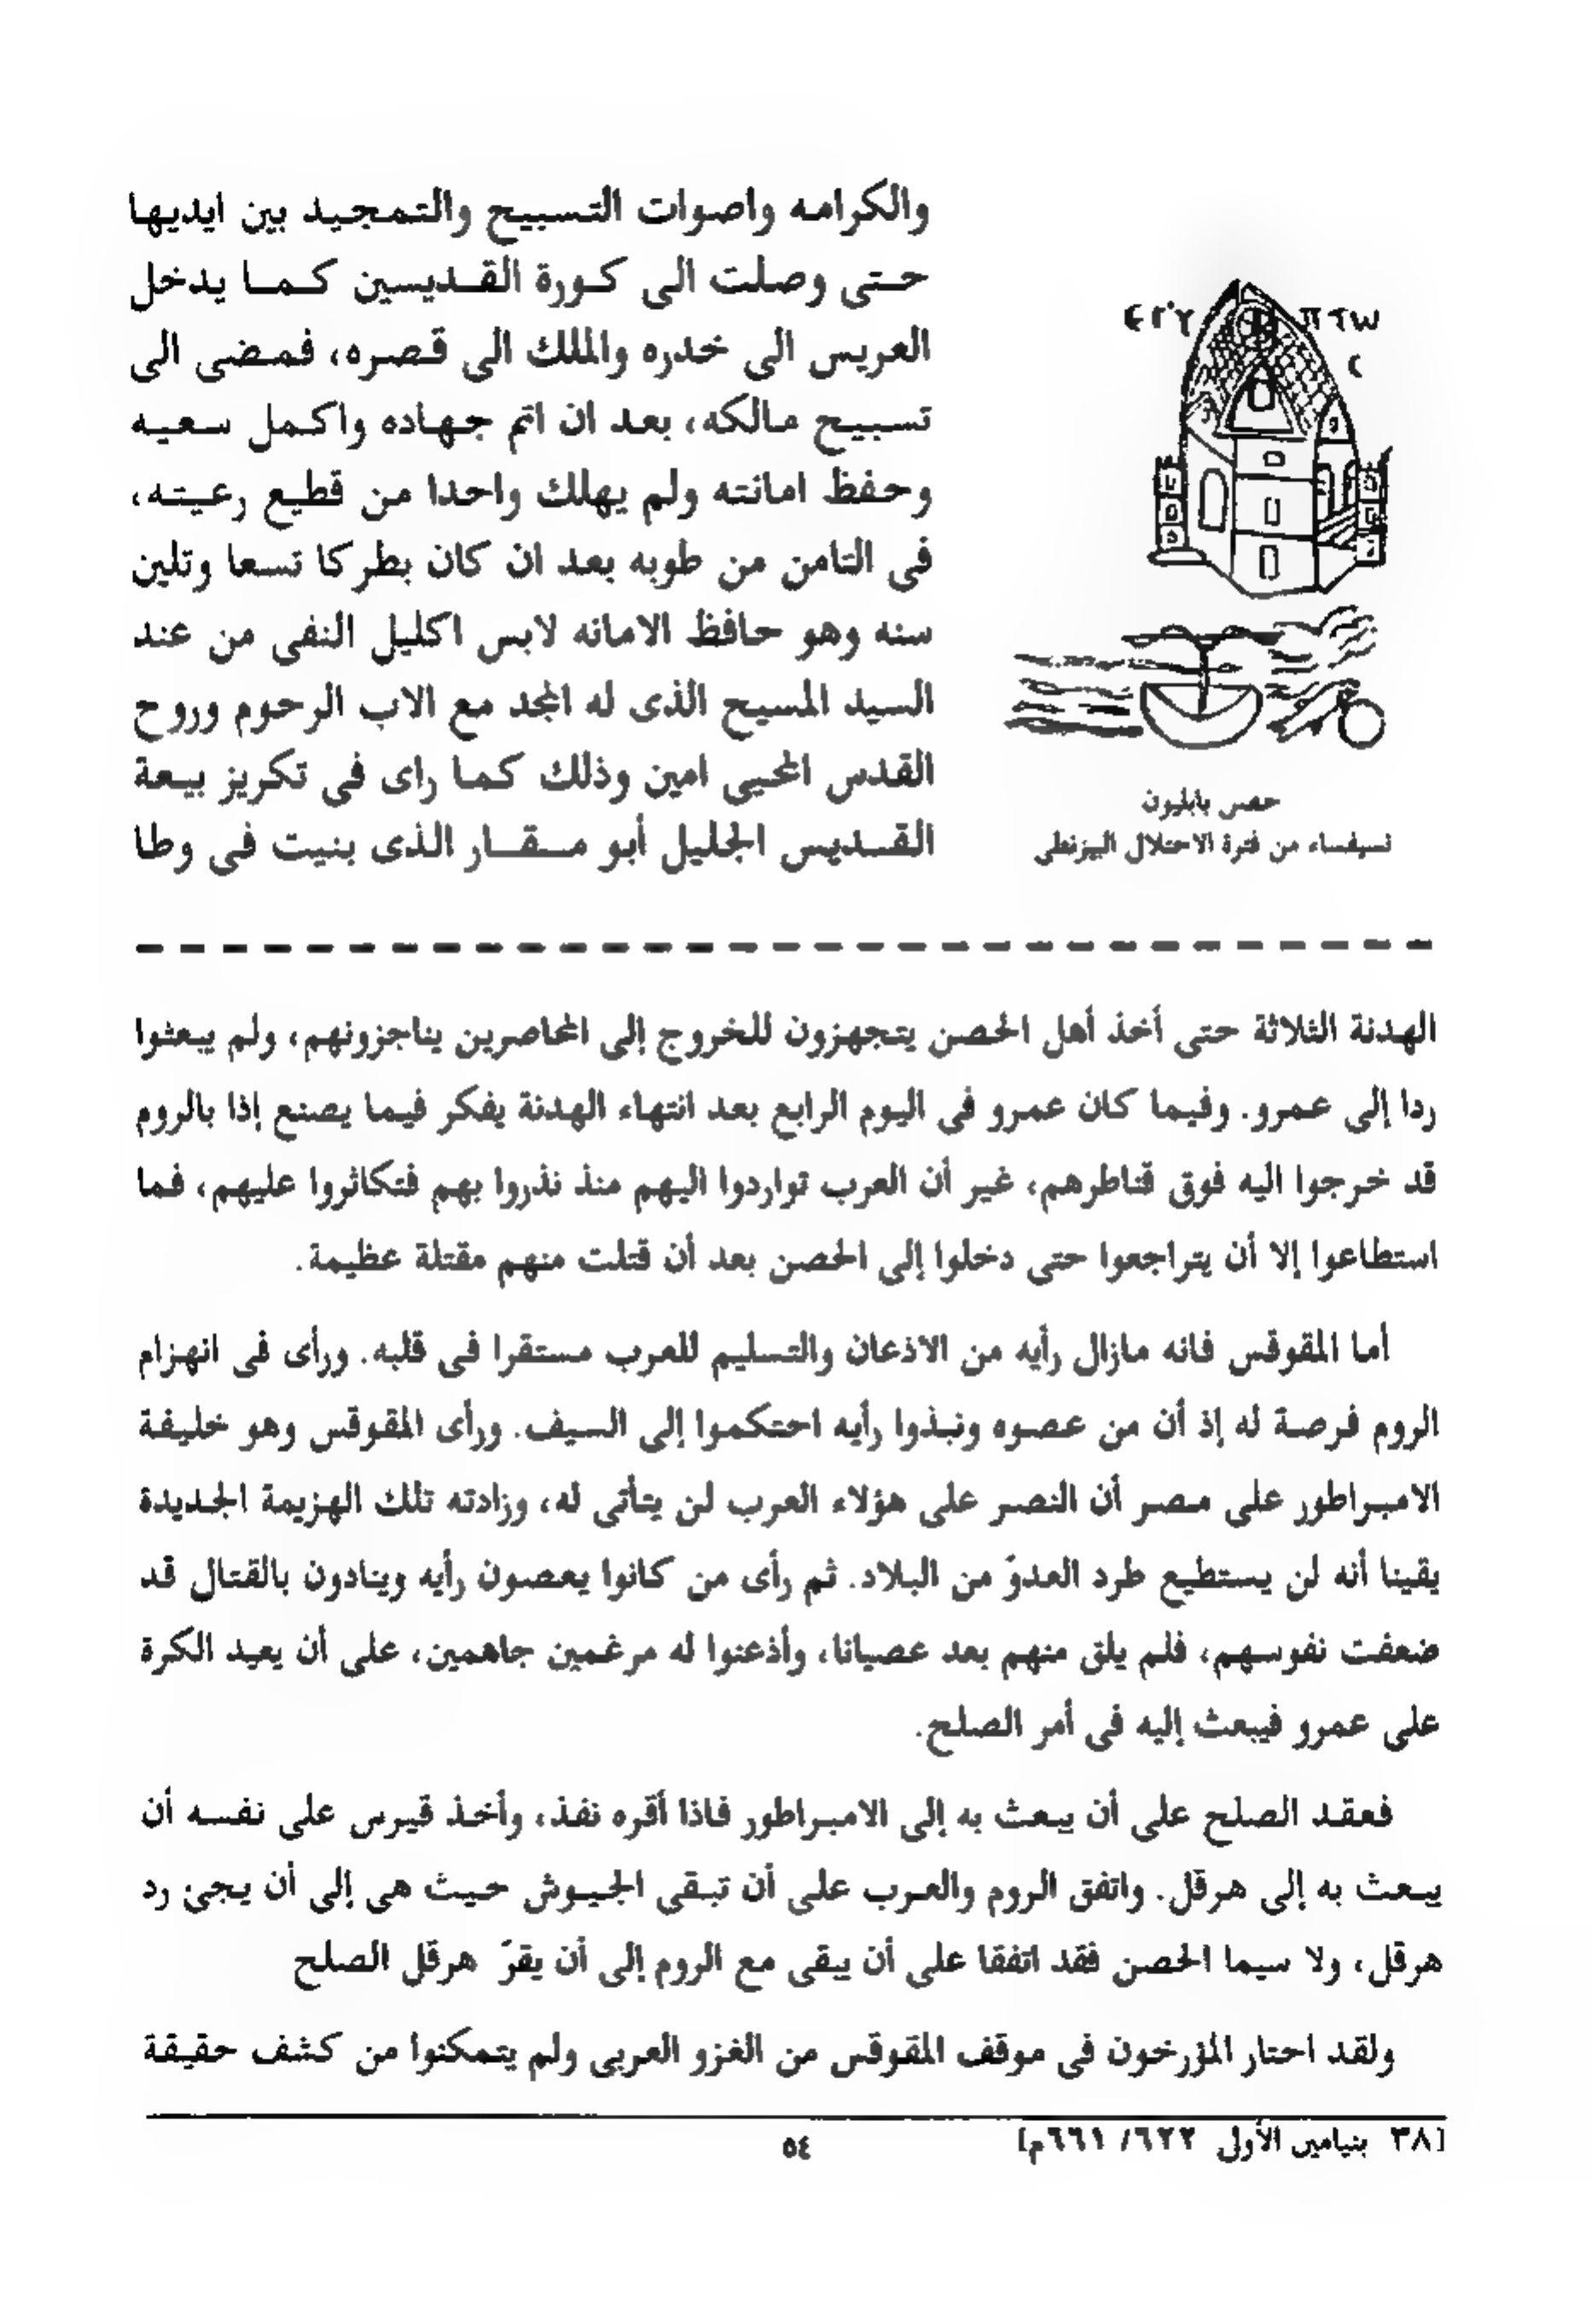 والكرامه واصوات التسبيح والتمجيد بين ايديها
حتى وصلت الى كورة القديسين كما يدخل
العريس الى خدره والملك الى قصره، فمضى الى
تسبيح مالكه، بعد ان اتم جهاده واكمل سعيه
وحفظ امانته ولم يهلك واحدا من قطيع رعيته،
فى التامن من طوبه بعد ان كان بطركا تسعا وتلين
سنه وهو حافظ الامانه لابس اكليل النفى من عند
السيد المسيح الذى له المجد مع الاب الرحوم وروح
القدس المحيى امين وذلك كما راى فى تكريز بيعة
القديس الجليل أبو مقار الذى بنيت فى وطا
حصن بابليون
فسيفساء من فترة الاحتلال البيزنطى
الهدنة الثلاثة حتى أخذ أهل الحصن يتجهزون للخروج إلى المحاصرين يناجزونهم، ولم يبعثوا
ردا إلى عمرو. وفيما كان عمرو فى اليوم الرابع بعد انتهاء الهدنة يفكر فيما يصنع إذا بالروم
قد خرجوا اليه فوق قناطرهم، غير أن العرب تواردوا اليهم منذ نذروا بهم فتكاثروا عليهم، فما
استطاعوا إلا أن يتراجعوا حتى دخلوا إلى الحصن بعد أن قتلت منهم مقتلة عظيمة.
أما المقوقس فانه مازال رأيه من الاذعان والتسليم للعرب مستقرا فى قلبه. ورأى فى انهزام
الروم فرصة له إذ أن من عصوه ونبذوا رأيه احتكموا إلى السيف. ورأى المقوقس وهو خليفة
الامبراطور على مصر أن النصر على هؤلاء العرب لن يتأتى له، وزادته تلك الهزيمة الجديدة
يقينا أنه لن يستطيع طرد العدوّ من البلاد. ثم رأى من كانوا يعصون رأيه وينادون بالقتال قد
ضعفت نفوسهم، فلم يلق منهم بعد عصيانا، وأذعنوا له مرغمين جاهمين، على أن يعيد الكرة
على عمرو فيبعث إليه فى أمر الصلح.
فعقد الصلح على أن يبعث به إلى الامبراطور فاذا أقره نفذ، وأخذ قيرس على نفسه أن
يبعث به إلى هرقل. واتفق الروم والعرب على أن تبقى الجيوش حيث هى إلى أن يجئ رد
هرقل، ولا سيما الحصن فقد اتفقا على أن يبقى مع الروم إلى أن يقرّ هرقل الصلح
ولقد احتار المؤرخون فى موقف المقوقس من الغزو العربى ولم يتمكنوا من كشف حقيقة
[٣٨ بنيامين الأول ٦٢٢/ ٦٦١م]
٥٤